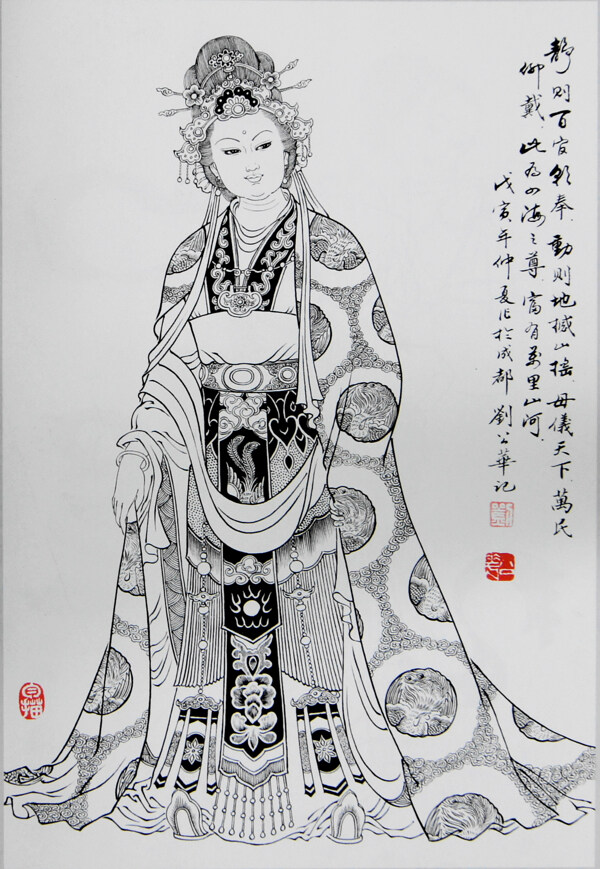 靜则百官朝奉、動则地撼山摇、母儀天下、萬民
仰戴、此为四海之尊、富有萬里山河、
戊寅年仲夏作於成都 劉公華记
劉
公華
白描